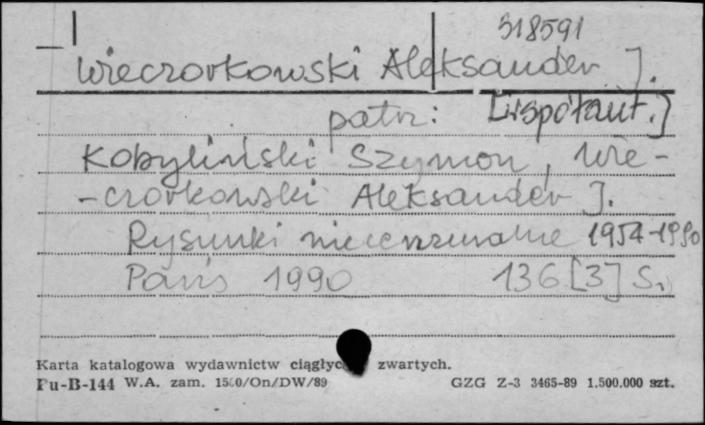 318591
Wieczorkowski Aleksander J.
patrz: [współaut.]
Kobyliński Szymon, Wie-
-czorkowski Aleksander J.
Rysunki niecenzuralne 1954-1990
Paris 1990 136 [3] s.
Karta katalogowa wydawnictw zwartych.
Pu-B-144 W.A. zam. /On/DW/89 GZG Z-3 3465-89 1.500.000 szt.